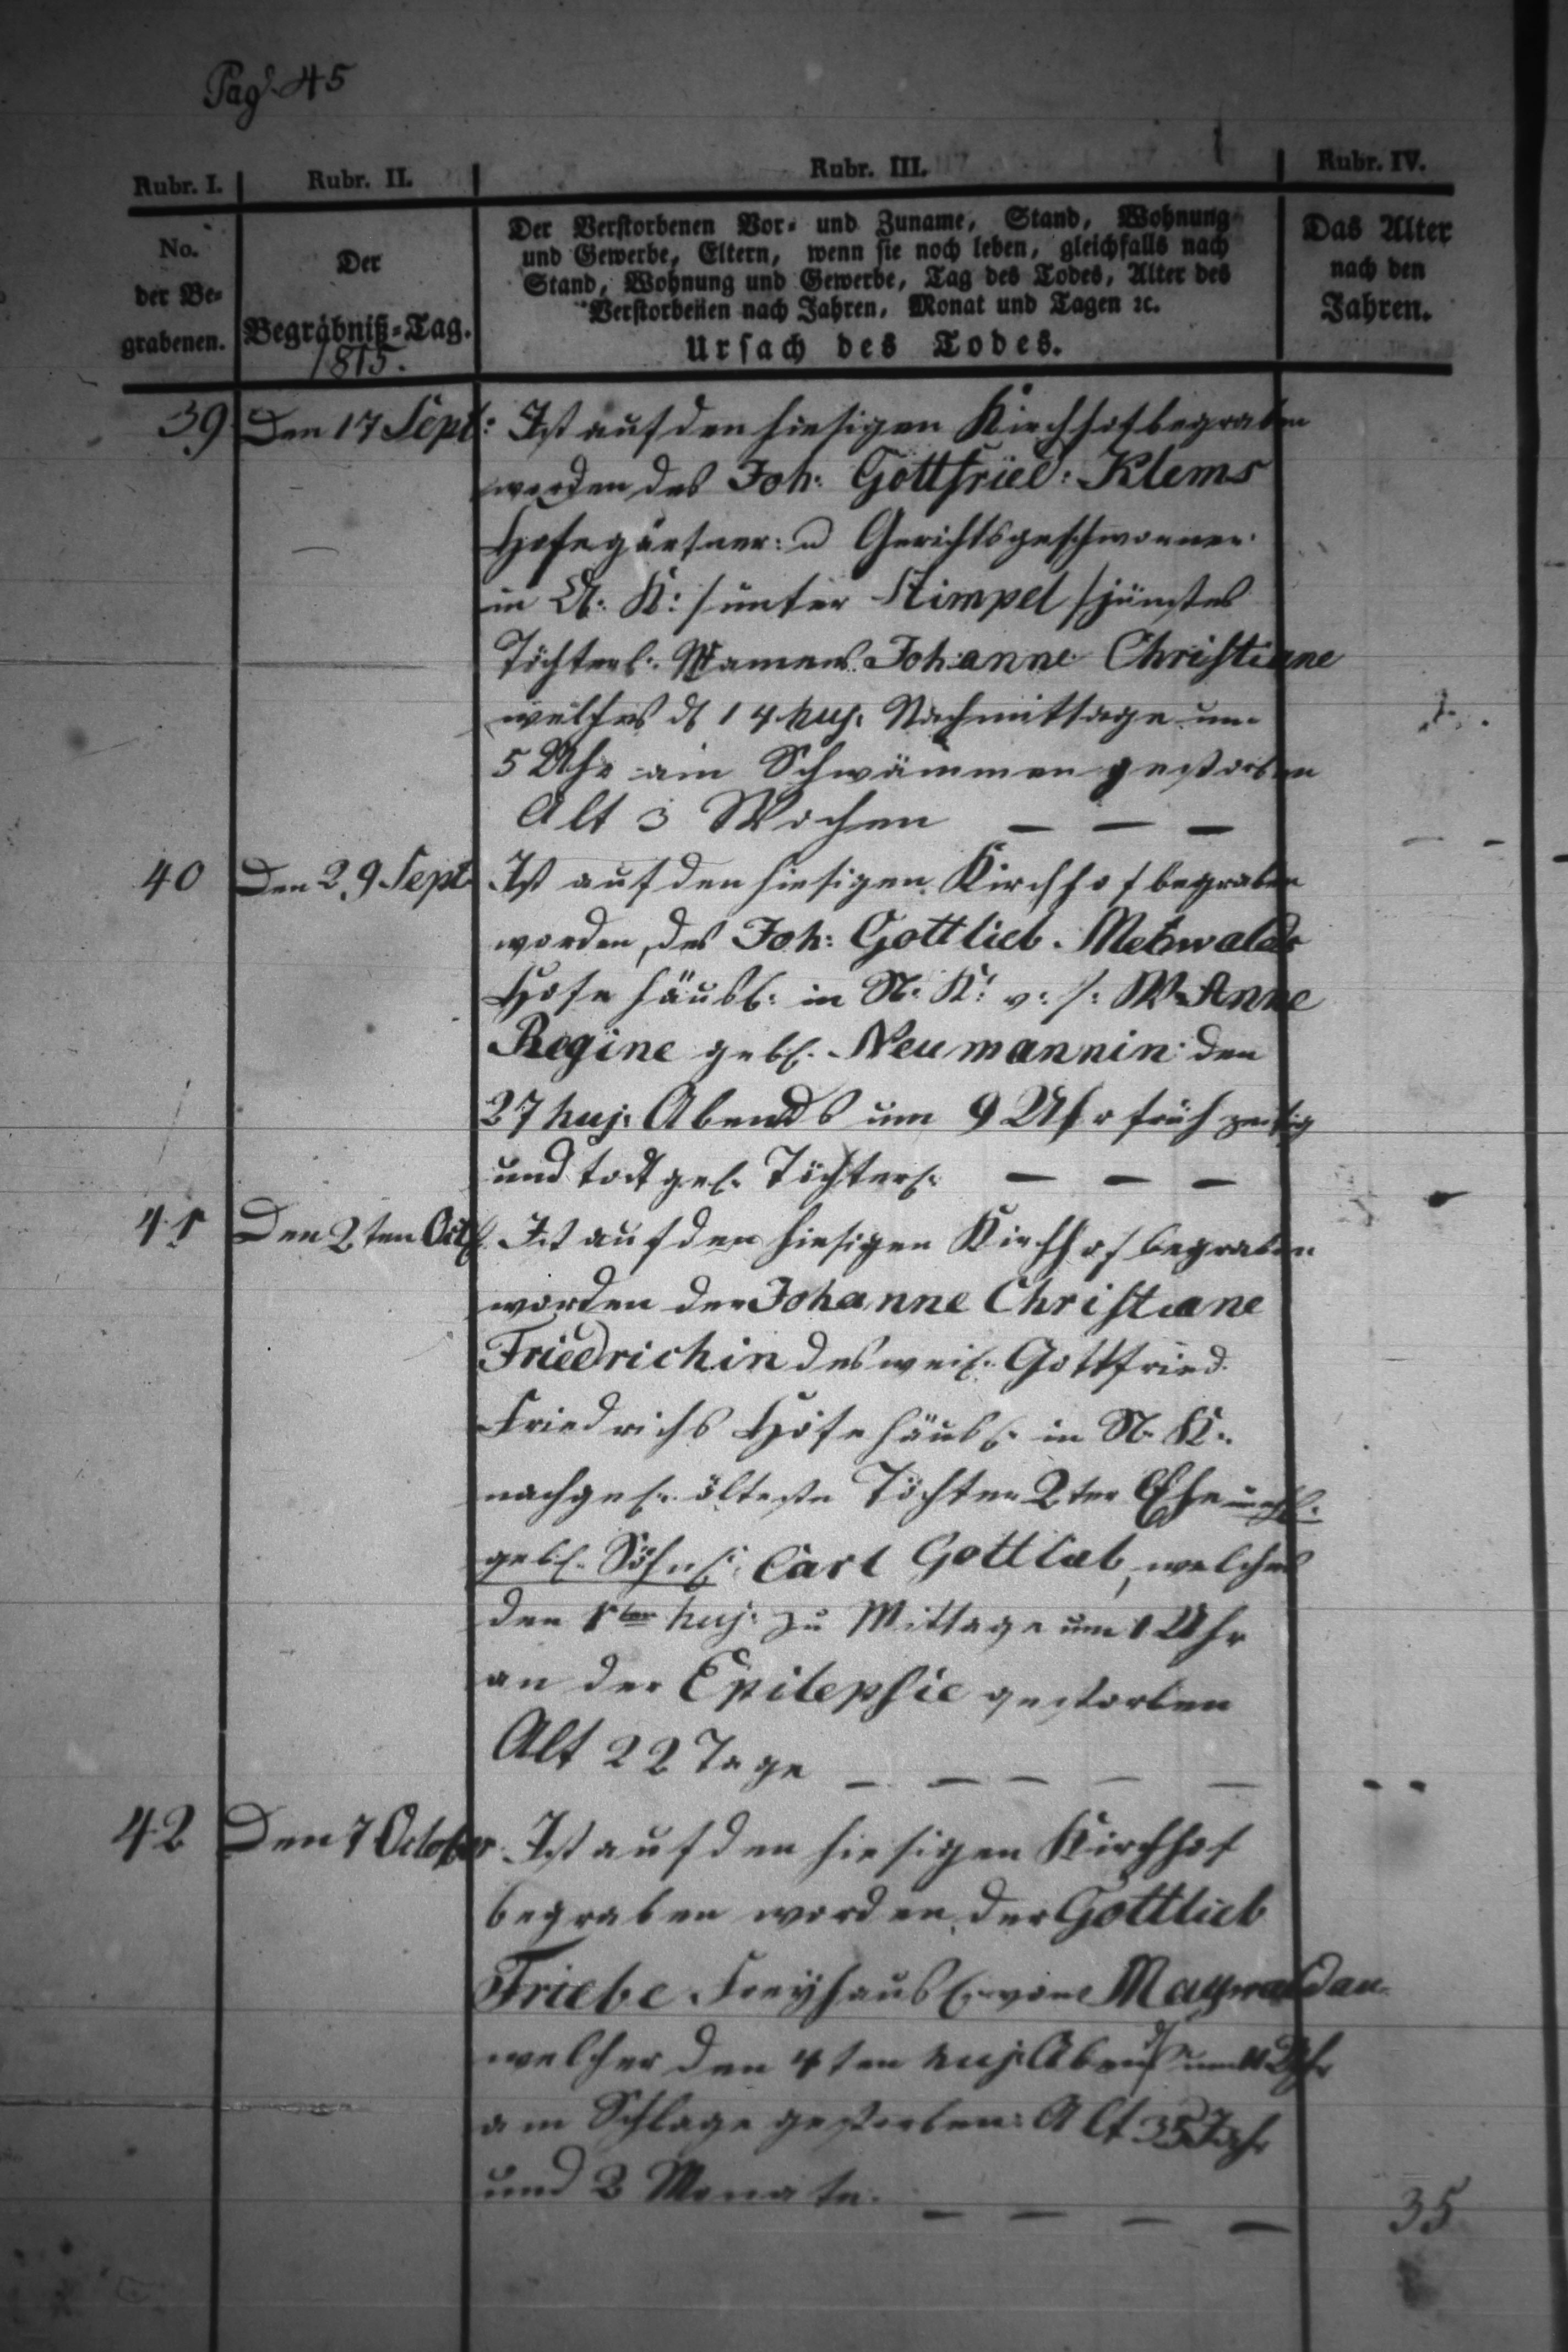 Pag. 45
Rubr. I. Rubr. II. Rubr. III. Rubr. IV.
No.
der Be-
grabenen.
Der
Begräbniß-Tag.
1815.
Der Verstorbenen Vor- und Zuname, Stand, Wohnung
und Gewerbe, Eltern, wenn sie noch leben, gleichfalls nach
Stand, Wohnung und Gewerbe, Tag des Todes, Alter des
Verstorbenen nach Jahren, Monat und Tagen ꝛc.
Ursach des Todes.
Das Alter
nach den
Jahren.
39 Den 17 Sept: Ist auf den hiesigen Kirchhof begraben
worden des Joh: Gottfried: Klems
Hofegärtner: u Gerichtsgeschworner
in K: /unter Stimpel/ jüngstes
Töchterl: Namens Johanne Christiane
welches d 14 huj: Nachmittage um
5 Uhr am Schwämmen gestorben
Alt 3 Wochen — — —
40 Den 29 Sept Ist auf den hiesigen Kirchhof begraben
worden, des Joh: Gottlieb Metzwalds
Hofehäusl: in N: K: v: s: W: Anne
Regine gebl. Neumannin den
27 huj: Abends um 9 Uhr früh zeitig
und todt geb. Töchterl. — — —
41 Den 2ten Oct Ist auf den hiesigen Kirchhof begraben
worden der Johanne Christiane
Friedrichin des weil. Gottfried
Friedrichs Hofehäusl. in N. K.
nachgel. älteste Tochter 2ter Ehe unehl.
gebl. Söhnl: Carl Gottlieb, welches
den 1ten huj: zu Mittage um 1 Uhr
an der Epilepsie gestorben
Alt 22 Tage — — — — —
42 Den 7 October Ist auf den hiesigen Kirchhof
begraben worden der Gottlieb
Friebe Freyhäusl. von Maywaldau
welcher den 4ten huj: Abends um 11 Uhr
am Schlage gestorben: Alt 35 Jahr
und 2 Monate. — — — — 35